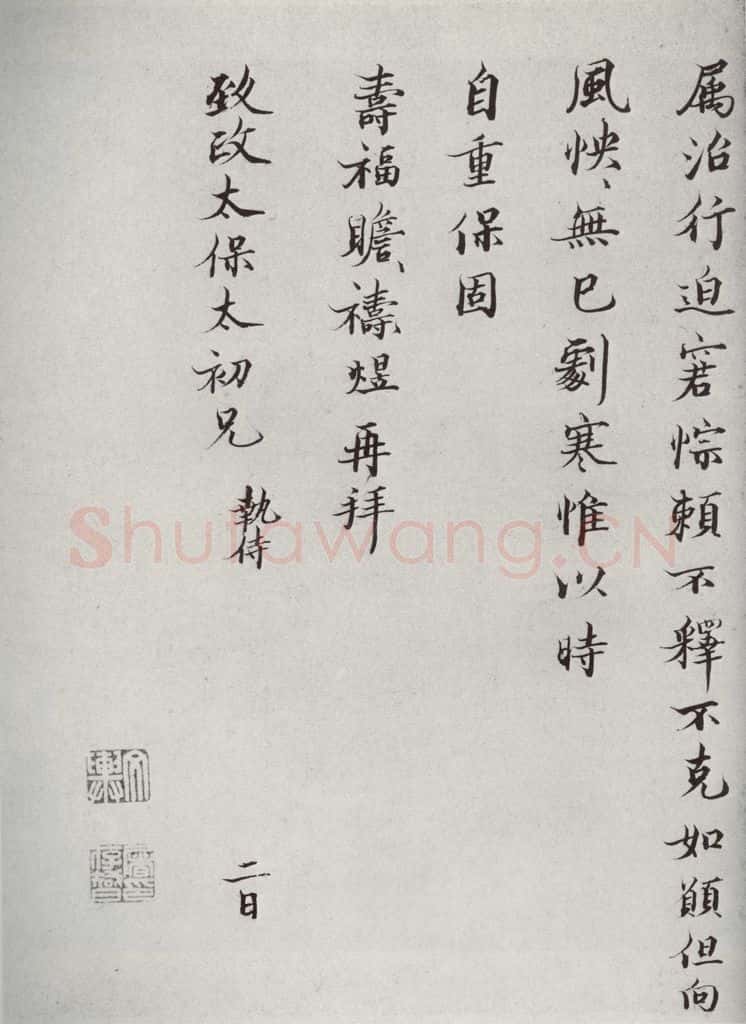 属治行迫窘悰頼不釋不克如願但向
風怏、無已劇寒惟以時
自重保固
壽福瞻、禱、煜再拜
致政太保太初兄
執侍
二日
Shufawang.CN